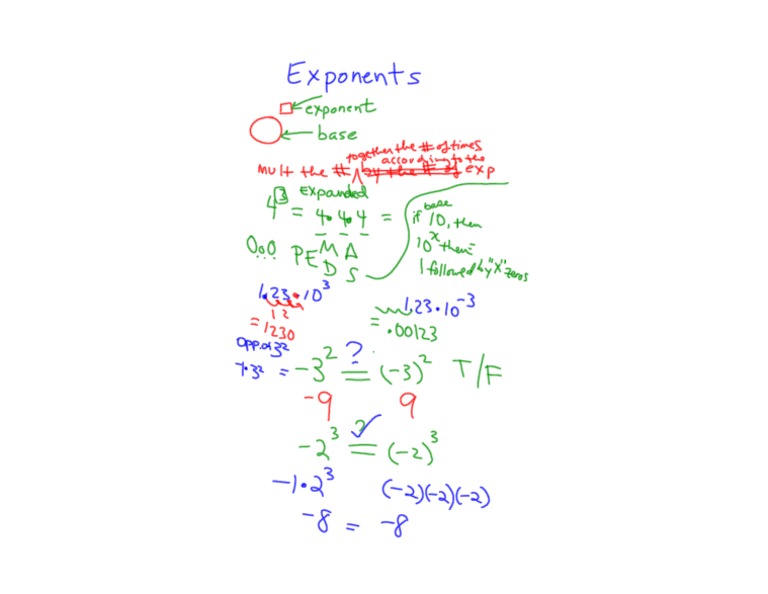 Exponents
exponent
base
together the # of times
according to the
mult the # ∧ by the # of exp
Expanded
4³ = 4·4·4 =
O.o.O PEMA
DS
base
if 10, then
10ˣ then =
1 followed by "x" zeros
1.23·10³
12
= 1230
1.23·10⁻³
= .00123
opp. of 3²
= -3² ≟ (-3)² T/F
-9 9
-2³ ≟ (-2)³
✓
-1·2³ (-2)(-2)(-2)
-8 = -8